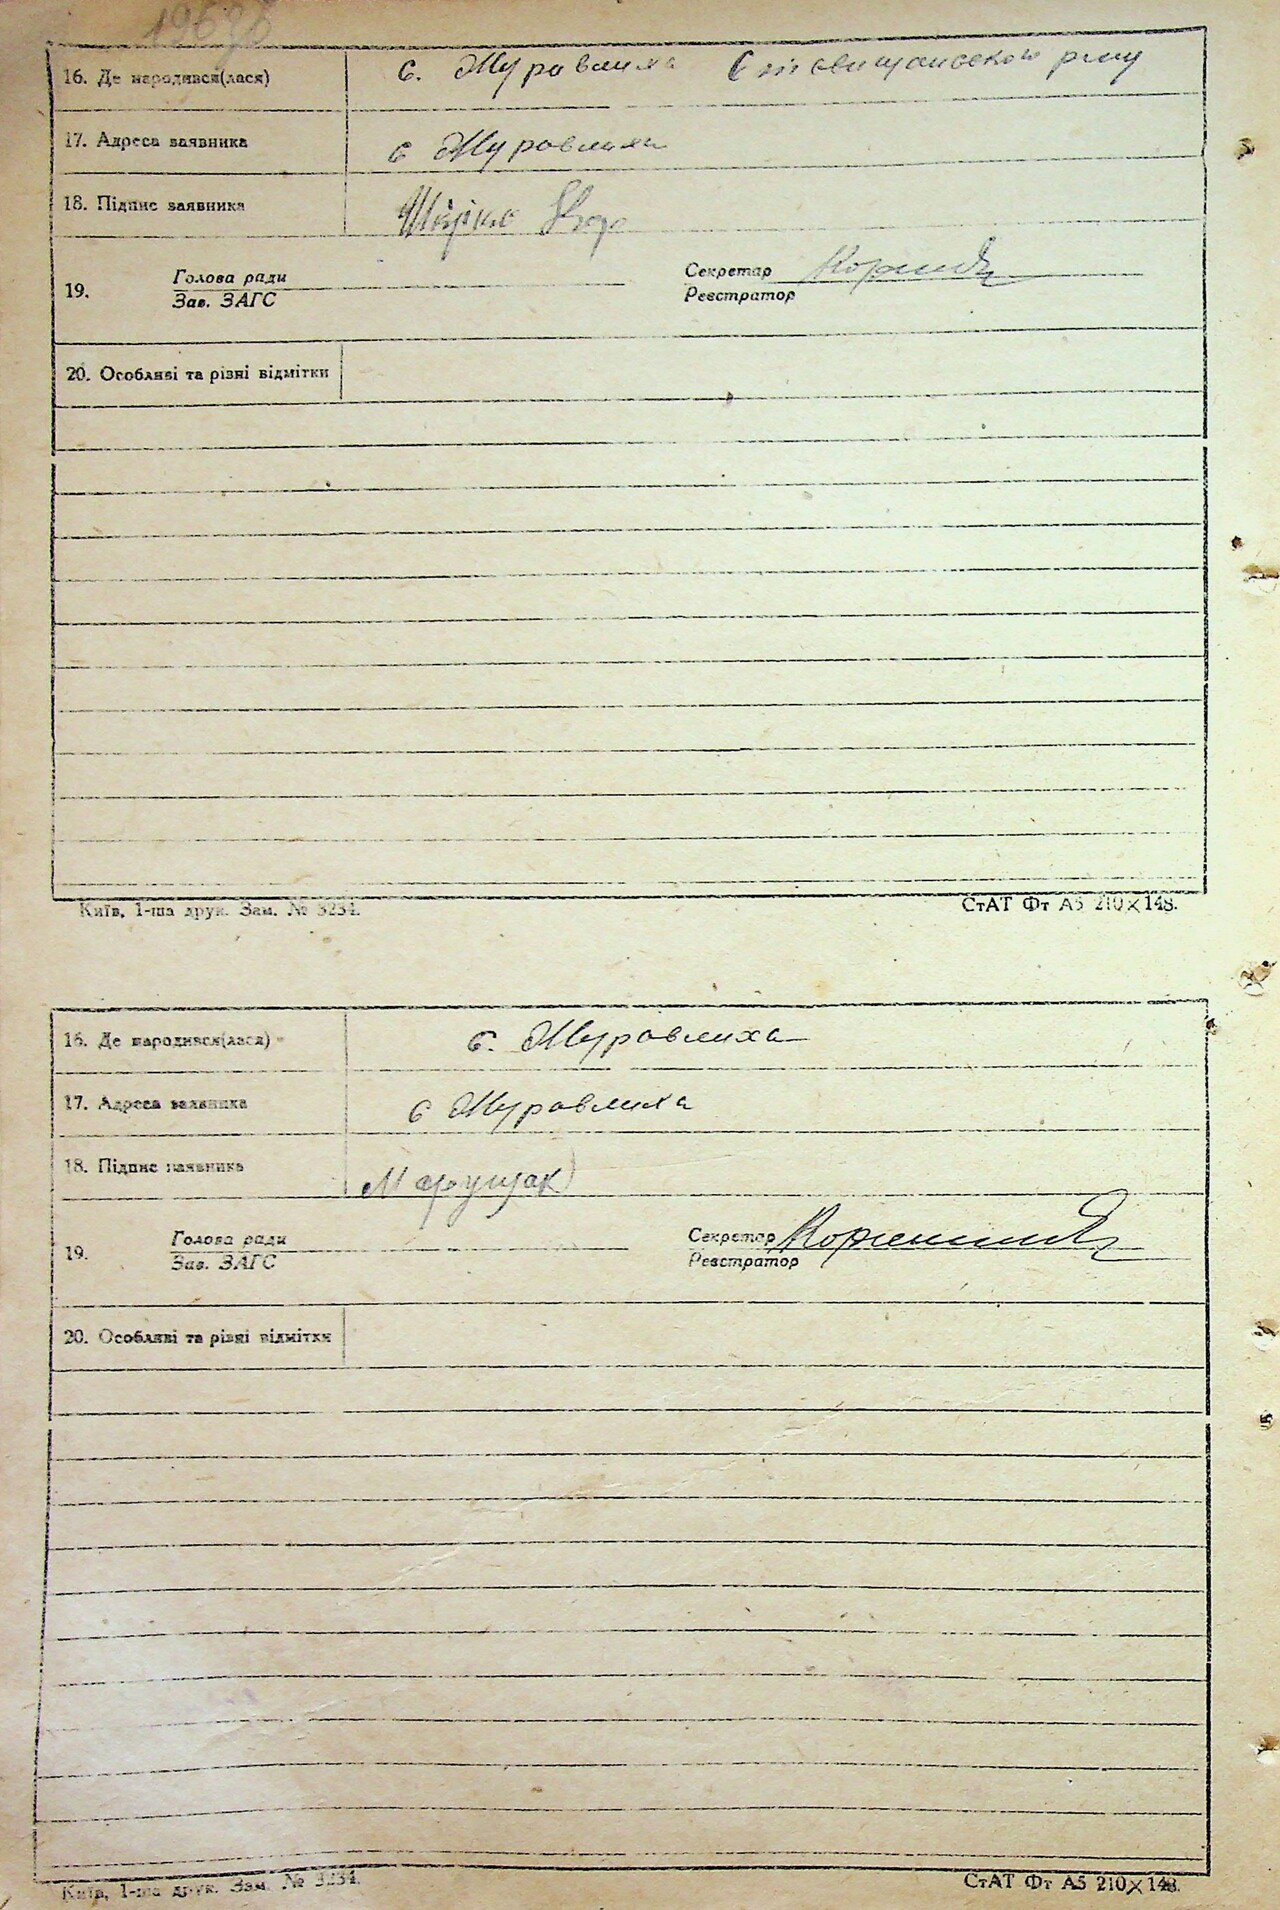 16. Де народився(лася) с. Журавлиха Ставищанского р-ну
17. Адреса заявника с Журавлиха
18. Підпис заявника
19. Голова ради Секретар
Зав. ЗАГС Реєстратор
20. Особливі та різні відмітки
Київ, 1-ша друк. Зам. № 3234. СтАТ Фт А5 210×148.
16. Де народився(лася) с. Журавлиха
17. Адреса заявника с Журавлиха
18. Підпис заявника Марущак
19. Голова ради Секретар
Зав. ЗАГС Реєстратор
20. Особливі та різні відмітки
Київ, 1-ша друк. Зам. № 3234. СтАТ Фт А5 210×148.